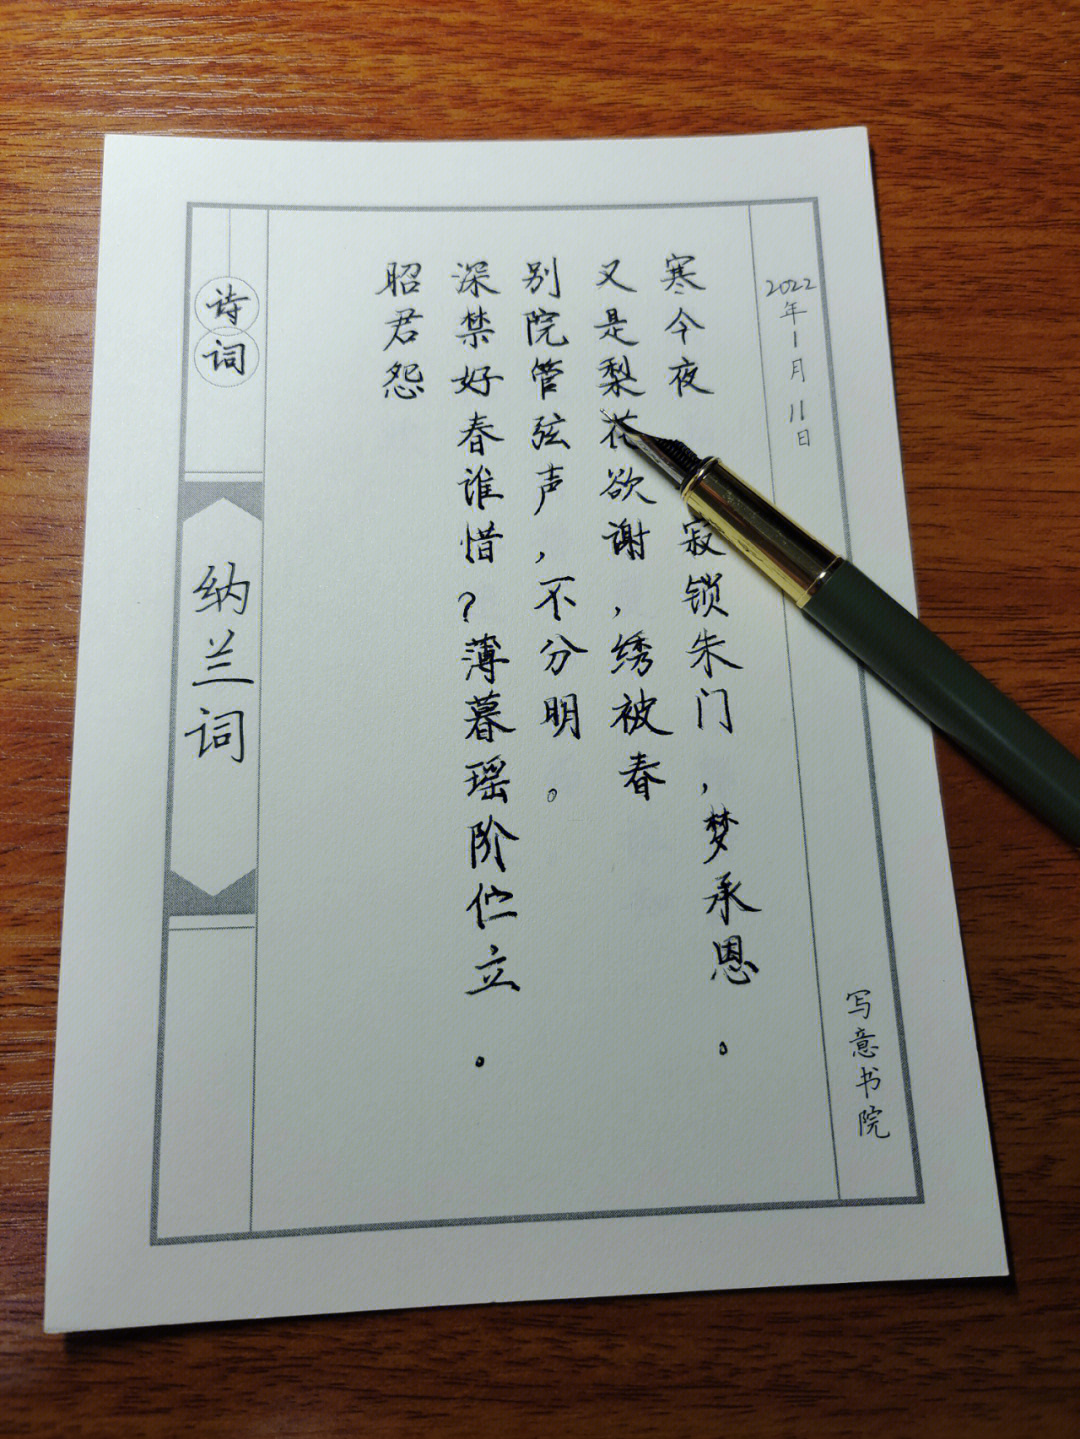 诗词
纳兰词
昭君怨
深禁好春谁惜?薄暮瑶阶伫立。
别院管弦声,不分明。
又是梨花欲谢,绣被春
寒今夜 寂锁朱门,梦承恩。
2022年1月11日
写意书院